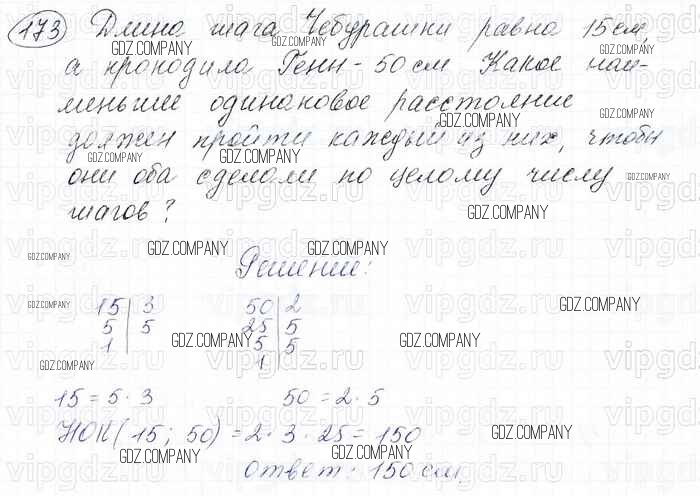 173 Длина шага Чебурашки равна 15 см,
GDZ.COMPANY GDZ.COMPANY GDZ.COMPANY
а крокодила Гены - 50 см Какое наи-
GDZ.COMPANY
меньшее одинаковое расстояние
GDZ.COMPANY GDZ.COMPANY
должен пройти каждый из них, чтобы
GDZ.COMPANY GDZ.COMPANY
они оба сделали по целому числу
GDZ.COMPANY
шагов?
GDZ.COMPANY
vipgdz.ru vipgdz.ru vipgdz.ru
GDZ.COMPANY GDZ.COMPANY GDZ.COMPANY
Решение:
GDZ.COMPANY GDZ.COMPANY
15 | 3 50 | 2
5 | 5 25 | 5
1 5 | 5
1
GDZ.COMPANY GDZ.COMPANY GDZ.COMPANY
15 = 5 · 3 50 = 2 · 5
НОК (15; 50) = 2 · 3 · 25 = 150
GDZ.COMPANY GDZ.COMPANY
ответ: 150 см.
GDZ.COMPANY